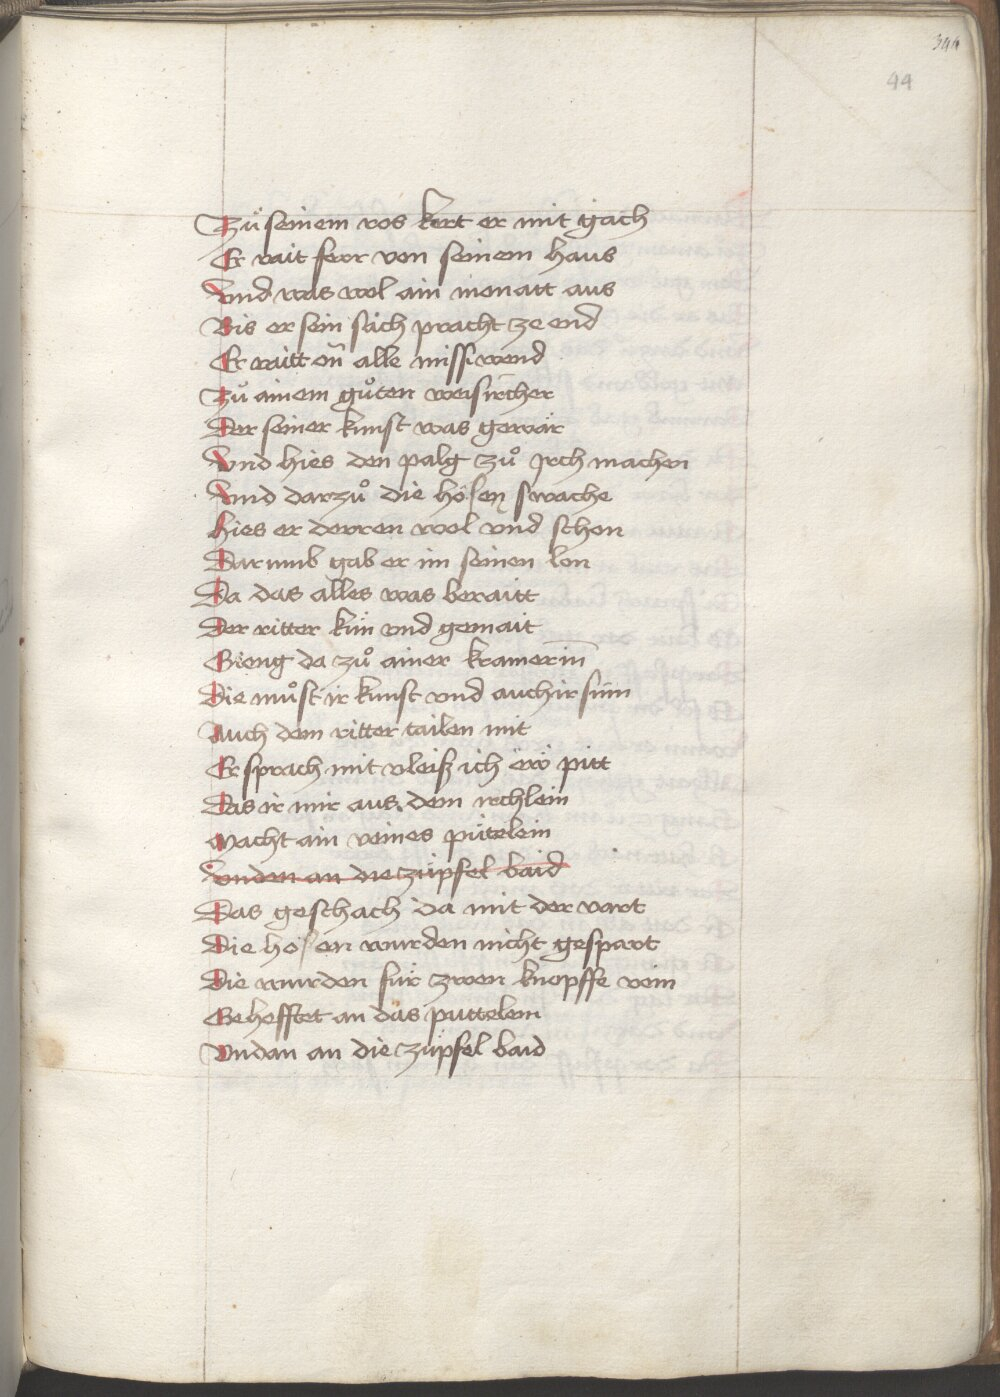 344
44
Zuͦ seinem ros kert er mit gäch
Er rait ferr von seinem haus
Vnd was wol ain monatt aus
Bis er sein sach pracht ze end
Er raitt on̄ alle missiwend
Zuͦ ainem guͦten weisircher
Der seiner kunst was gewär
Vnd hies den palg zuͦ jrch machen
Vnd darzuͦ die hosen swache
Hies er derren wol vnd schon
Darumb gab er im seinen lon
Da das alles was beraitt
Der ritter kün vnd gemait
Gieng da zuͦ ainer kramerin̄
Die muͦst ir kunst vnd auch ir sinn
Auch dem ritter tailen mit
Er sprach mit vleiß ich ew pitt
Das ir mir aus dem irchlein
Macht ain veines pütelein
Vnden an die züpfel baid
Das geschach da mit der vart
Die hosen wurden nicht gespart
Die wurden für zwen knopffe vein
Gehefftet an das puttelein
Vndan an die züpfel baid